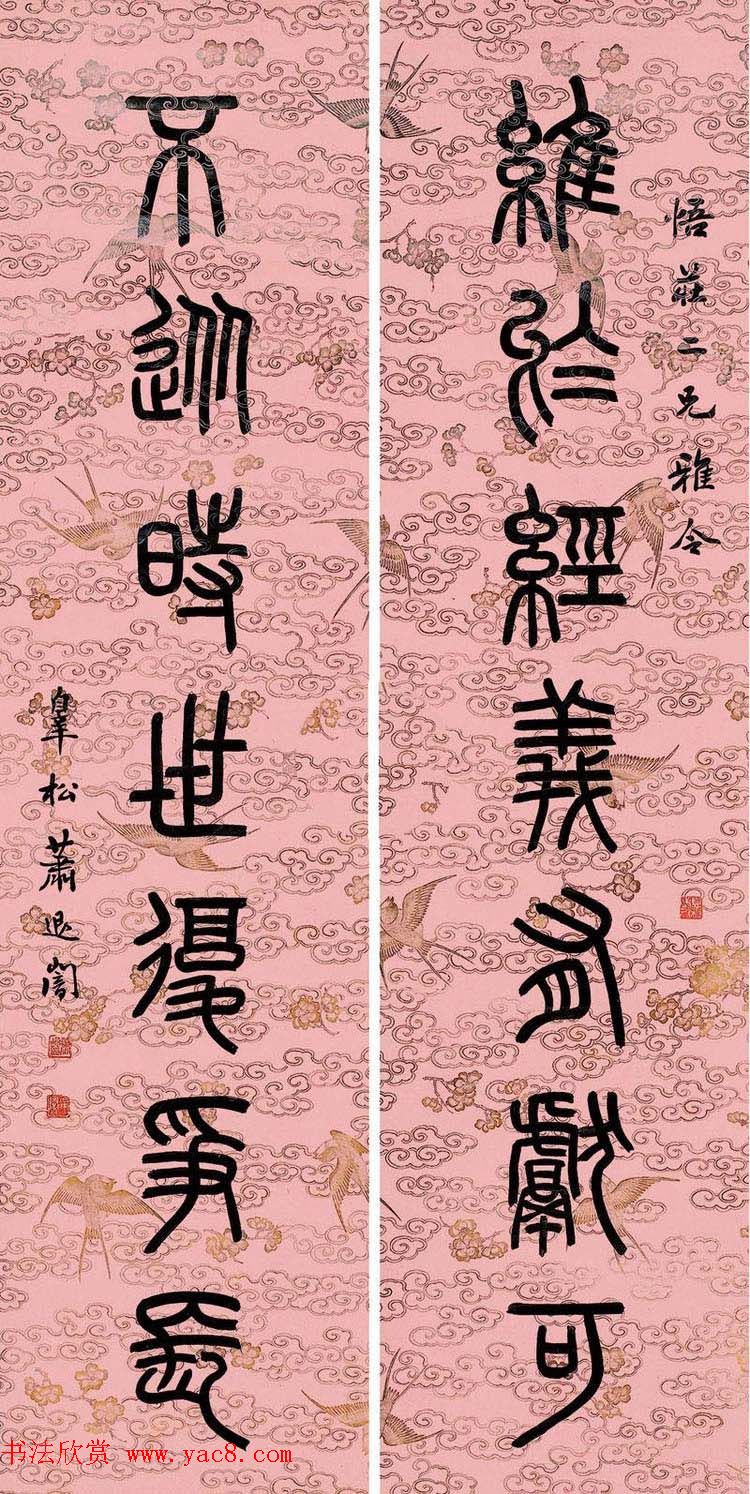 悟莊二兄雅令
維於經義有獻可
不從時世復爭長
皋松蕭退闇
书法欣赏 www.yac8.com